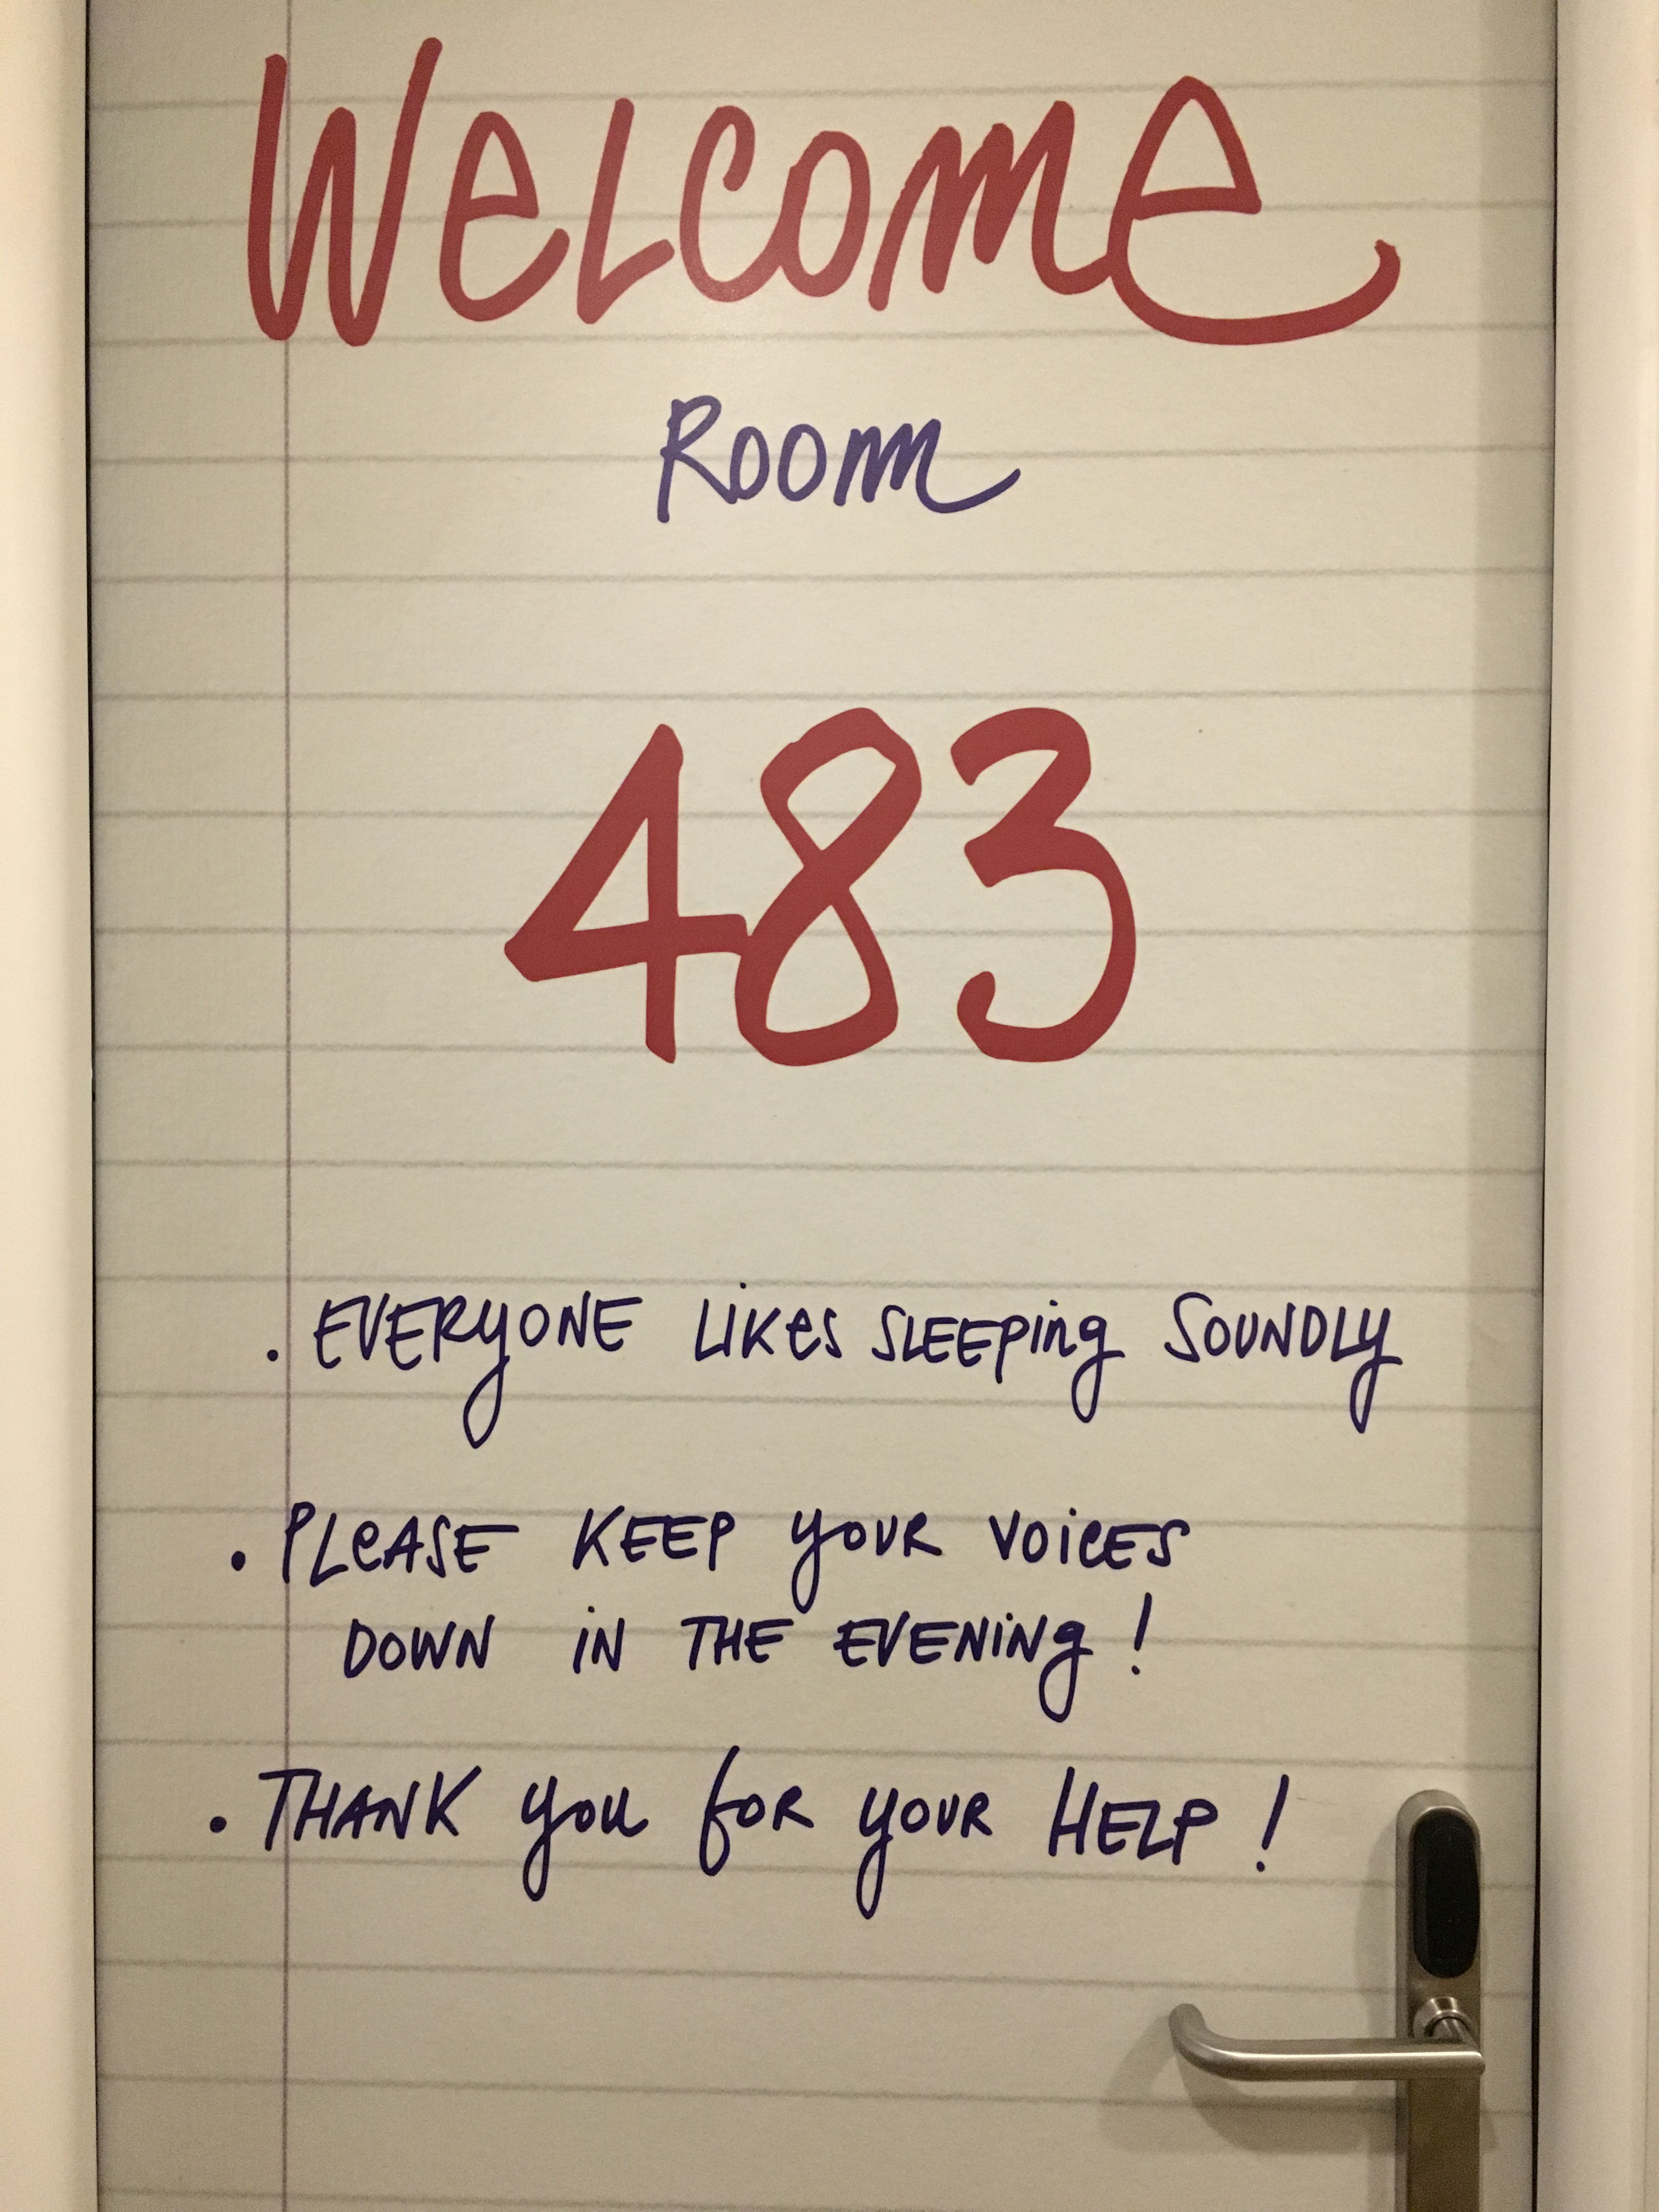 WeLcome
Room
483
. EVERYONE LiKes SLEEPing SOUNDLy
. PLeASE KEEP yOUR VOiCES
DOWN iN THE EVENiNg !
. THANK you foR yOUR HELP !